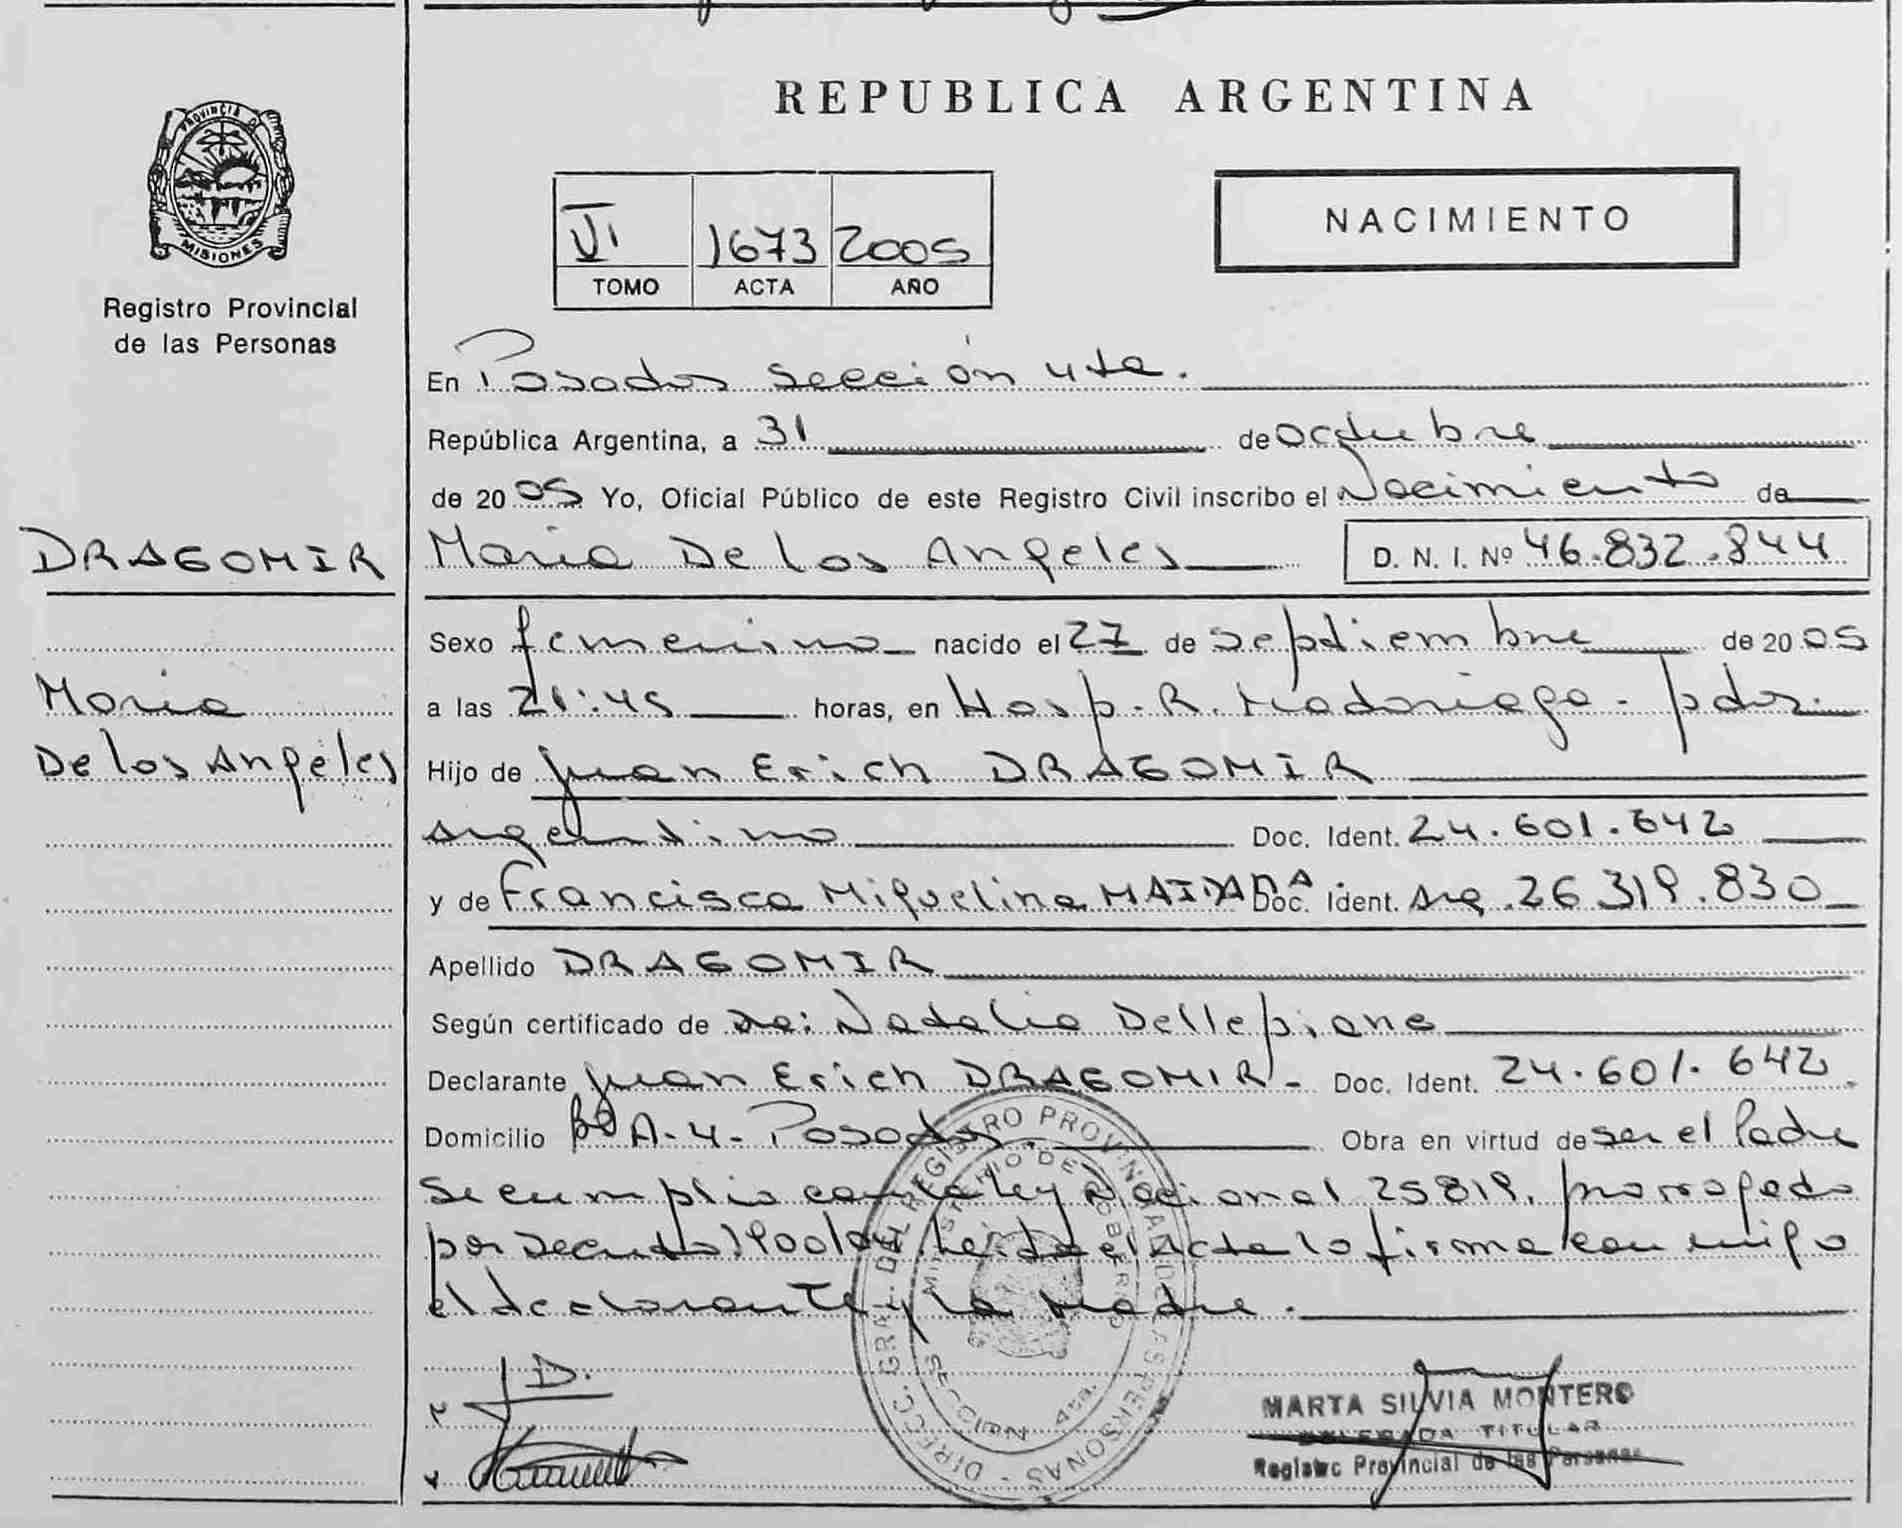 PROVINCIA D
MISIONES
Registro Provincial
de las Personas
DRAGOMIR
Maria
De los Angeles
REPUBLICA ARGENTINA
VI 1673 2005
TOMO ACTA AÑO
NACIMIENTO
En Posadas Sección 4ta.
República Argentina, a 31 de octubre
de 20 05 Yo, Oficial Público de este Registro Civil inscribo el Nacimiento de
Maria De los Angeles D. N. I. Nº 46.832.844
Sexo femenino nacido el 27 de septiembre de 20 05
a las 21:45 horas, en Hosp. R. Madariaga - pdas.
Hijo de Juan Erich DRAGOMIR
argentino Doc. Ident. 24.601.642
y de Francisca Miguelina MAIDANA Doc. Ident. Arg. 26.319.830
Apellido DRAGOMIR
Según certificado de Natalia Dellepiane
Declarante Juan Erich DRAGOMIR - Doc. Ident. 24.601.642
Domicilio Bº A-4- Posadas. Obra en virtud de ser el Padre
Se cumplio con la ley Nacional 25819. prorrogado
por Decreto 1900/04. Leida el Acta lo firma conmigo
el declarante y la Madre.
J D.
DIRECC. GRAL. DEL REGISTRO PROVIN. DE LAS PERSONAS
MINISTERIO DE GOBIERNO
SECCION 4ta.
MARTA SILVIA MONTERO
DELEGADA TITULAR
Registro Provincial de las Personas